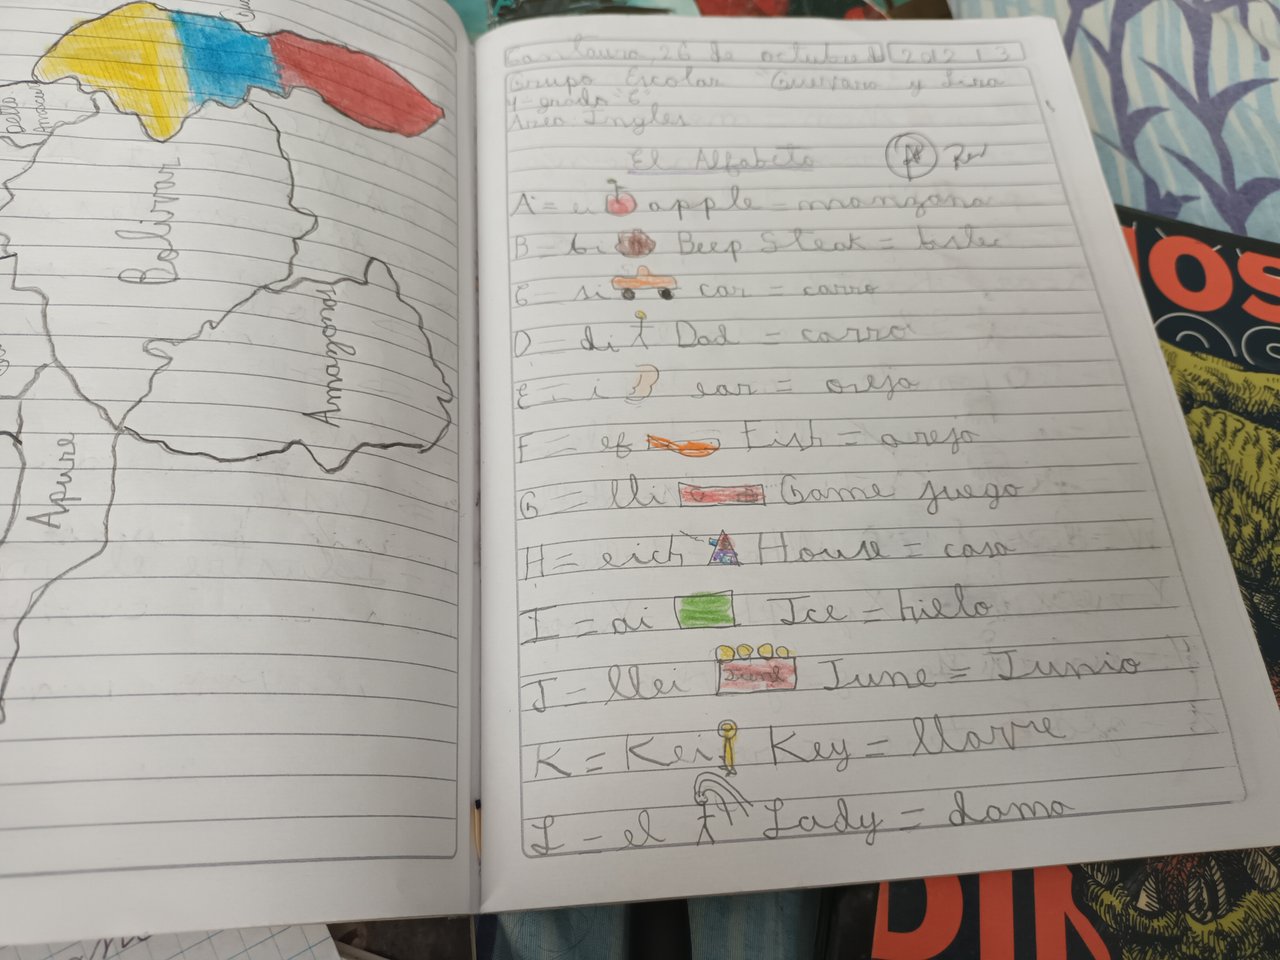 Bolívar
Amazonas
Apure
Cantaura, 26 de octubre 2012 13
Grupo Escolar Guevara y Lira
4- grado "C"
Area Ingles
El Alfabeto
A = ei apple = manzana
B = bi Beep Steak = bistec
C = si car = carro
D = di Dad = carro
E = i ear = oreja
F = ef Fish = oreja
G = lli Game juego
H = eich House = casa
I = ai Ice = hielo
J = llei june June = Junio
K = Kei Key = llavre
L = el Lady = dama
OS
DIK